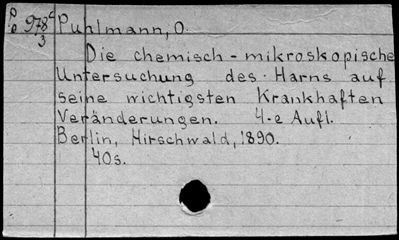 P 978c Puhlmann, O.
o 3
Die chemisch-mikroskopische
Untersuchung des Harns auf
seine wichtigsten Krankhaften
Veränderungen. 4-e Aufl.
Berlin, Hirschwald, 1890.
40s.